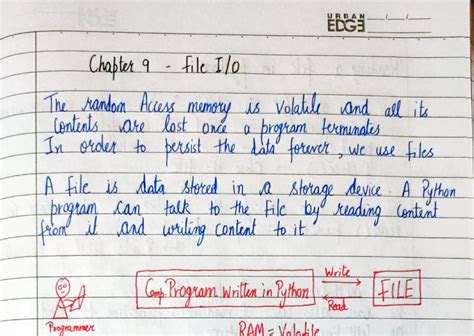 URBAN
EDGE
Chapter 9 - File I/O
The random Access memory is volatile and all its
contents are lost once a program terminates
In order to persist the data forever, we use files
A file is data stored in a storage device. A Python
program can talk to the file by reading content
from it and writing content to it.
Comp Program written in Python
Write
Read
FILE
Programmer
RAM = Volatile